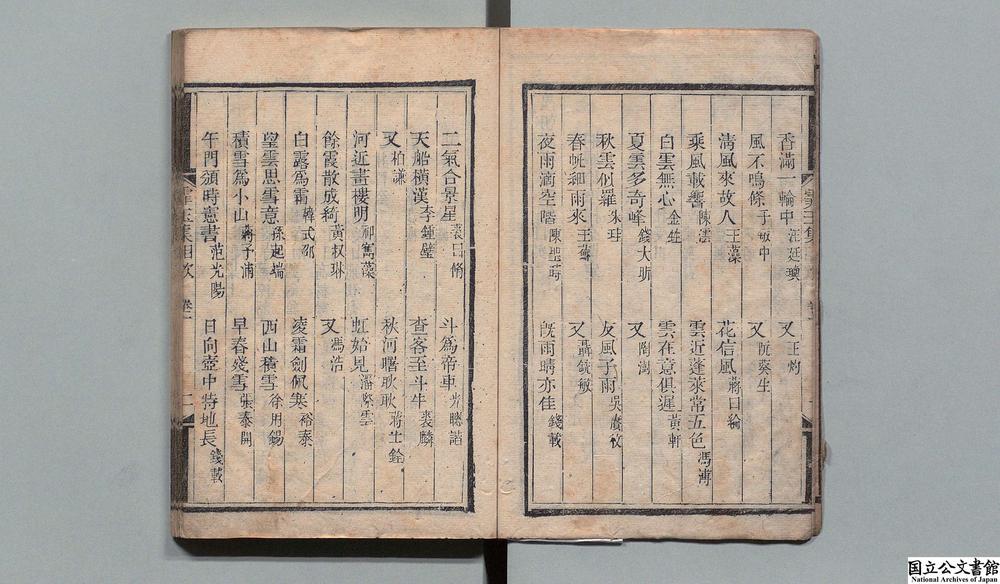 香滿一輪中 汪廷璵 又 王灼
風不鳴條 于敏中 又 阮葵生
清風來故人 王藻 花信風 蔣曰綸
乘風載響 陳澐 雲近蓬萊常五色 馮溥
白雲無心 金甡 雲在意俱遲 黃軒
夏雲多奇峰 錢大昕 又 陶澍
秋雲似羅 朱珪 友風子雨 吳廣枚
春帆細雨來 王 又 聶銑敏
夜雨滴空階 陳聖時 旣雨晴亦佳 錢載
二氣合景星 裘曰脩 斗爲帝車 尤聰誥
天船橫漢 李鍾璧 查客至斗牛 裘麟
又 柏謙 秋河曙耿耿 蔣士銓
河近畫樓明 寯藻 虹始見 潘際雲
餘霞散成綺 黃叔琳 又 馮浩
白露爲霜 韓式 凌霜劍佩寒 裕泰
望雲思雪意 孫起端 西山積雪 徐用錫
積雪爲小山 蔣予蒲 早春殘雪 張泰開
午門頒時憲書 范光陽 日向壺中特地長 錢載
玉集目次 卷二 二
国立公文書館
National Archives of Japan